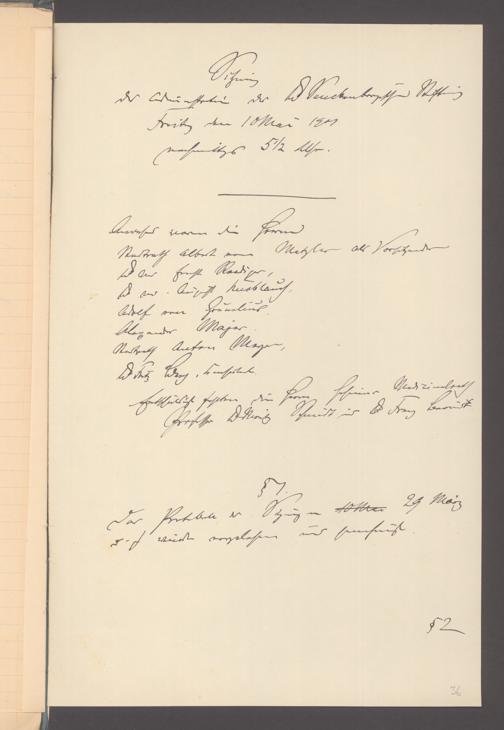 Sitzung
der Administration der Dr Senckenbergischen Stiftung
Freitag den 10 Mai 1901
nachmittags 5 1/2 Uhr.
Anwesend waren die Herren
Stadtrath Albert von Metzler als Vorsitzender
Dr med. Ernst Roediger,
Dr med. August Knoblauch,
Adolf von Grunelius.
Alexander Majer.
Stadtrath Anton Meyer,
Dr Fritz Berg, Konsulent.
Entschuldigt fehlten die Herrn Geheimer Medizinalrath
Professor Dr Moritz Schmidt und Dr Franz
§ 1.
Das Protokoll der Sitzung vom 29 März
wurde vorgelesen und genehmigt.
§ 2
36